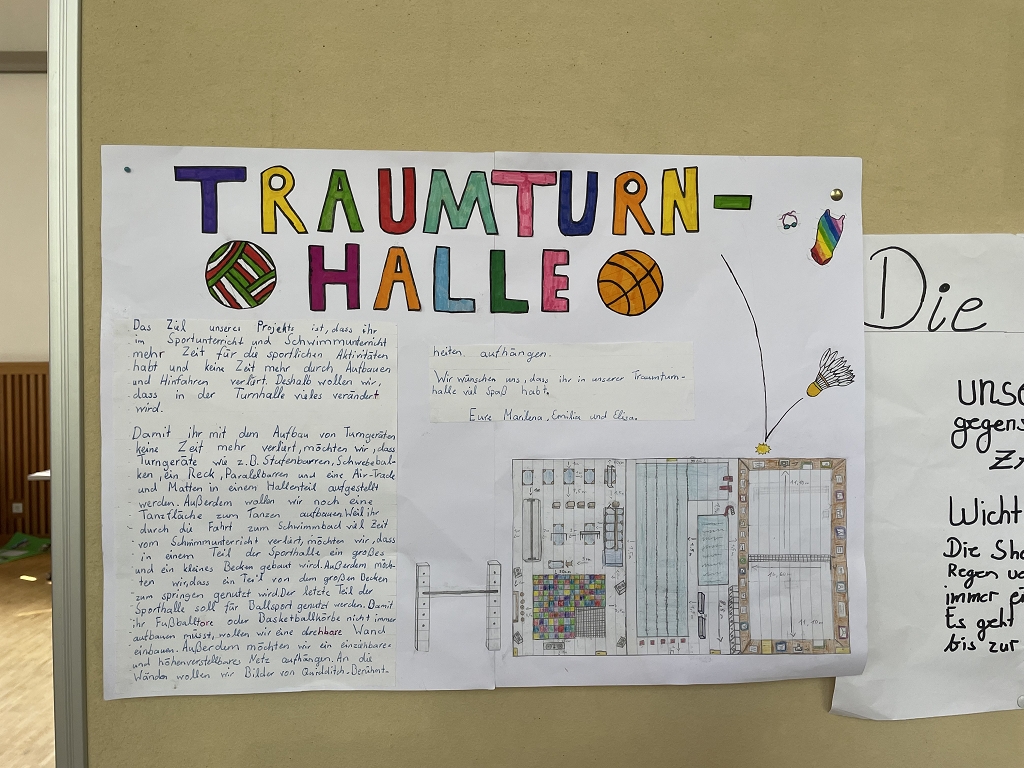 TRAUMTURN-
HALLE
Das Ziel unseres Projekts ist, dass ihr
in Sportunterricht und Schwimmunterricht
mehr Zeit für die sportlichen Aktivitäten
habt und keine Zeit mehr durch Aufbauen
und Hinfahren verlirt. Deshalb wollen wir,
dass in der Turnhalle vieles verändert
wird.
Damit ihr mit dem Aufbau von Turngeräten
keine Zeit mehr verlirt, möchten wir, dass
Turngeräte wie z.B. Stufenbarren, Schwebebal-
ken, ein Reck, Paralelbarren und eine Air-Track
und Matten in einem Hallenteil aufgestellt
werden. Außerdem wollen wir noch eine
Tanzfläche zum Tanzen aufbauen. Weil ihr
durch die Fahrt zum Schwimmbad viel Zeit
vom Schwimmunterricht verlirt, möchten wir, dass
in einem Teil der Sporthalle ein großes
und ein kleines Becken gebaut wird. Außerdem möch-
ten wir, dass ein Teil von dem großen Becken
zum springen genutzt wird. Der letzte Teil der
Sporthalle soll für Ballsport genutzt werden. Damit
ihr Fußballtore oder Basketballkörbe nicht immer
aufbauen müsst, wollen wir eine drehbare Wand
einbauen. Außerdem möchten wir ein einziehbares
und höhenverstellbares Netz aufhängen. An die
Wänden wollen wir Bilder von Quidditch-Berühmt-
heiten aufhängen.
Wir wünschen uns, dass ihr in unserer Traumturn-
halle viel Spaß habt.
Eure Marilena, Emilia und Elisa.
Die
unse
gegens
Wicht
Die Sho
Regen
immer ei
Es geht
bis zur